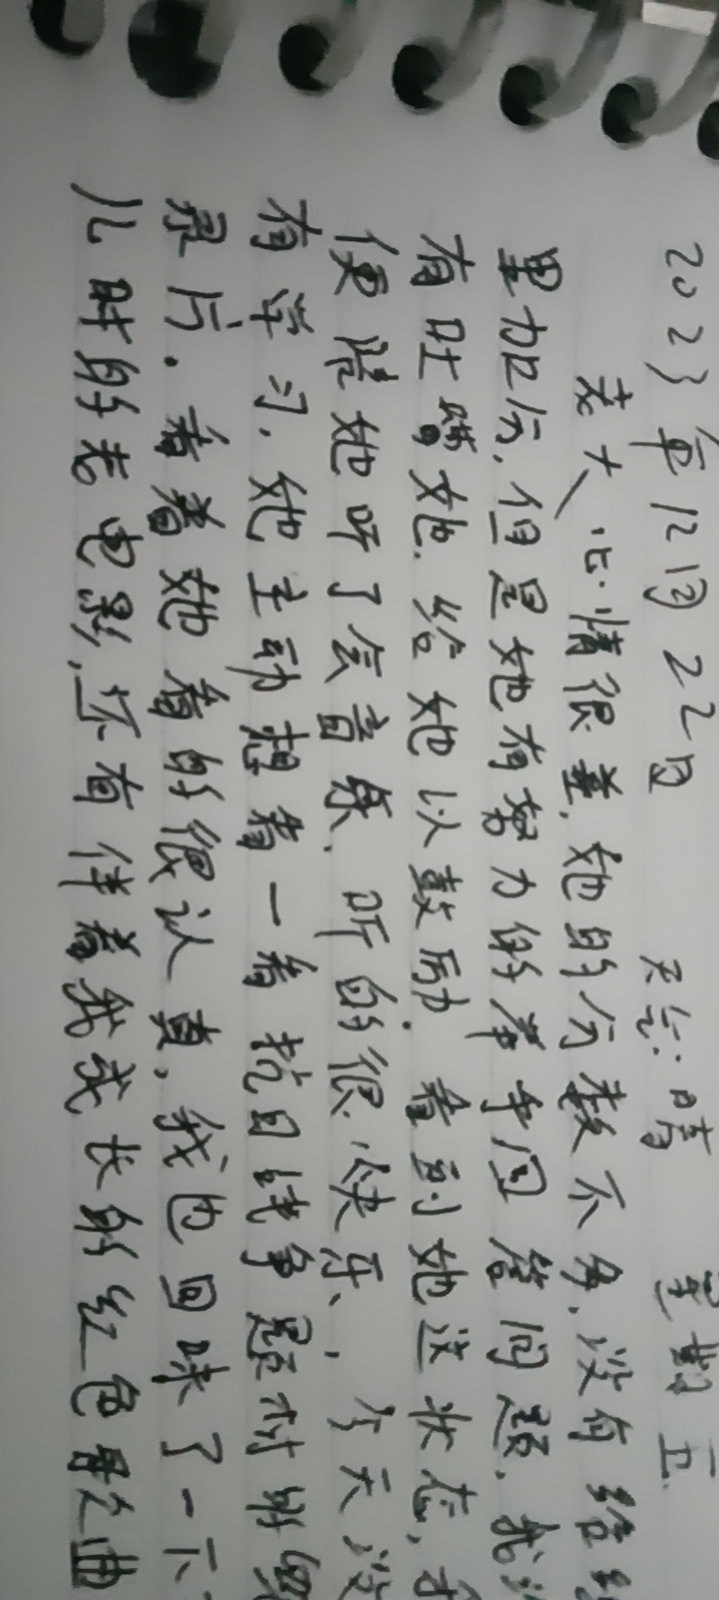 2023年12月22日 天气:晴 星期五
老大心情很差,她的分数不多,没有给组
里加分,但是她有努力的举手回答问题,我没
有吐嘈她,给她以鼓励,看到她这状态,我
便陪她听了会音乐,听的很快乐,今天没
有学习,她主动想看一看抗日战争题材的纪
录片,看着她看的很认真,我也回味了一下
儿时的老电影,还有伴着我成长的红色歌曲